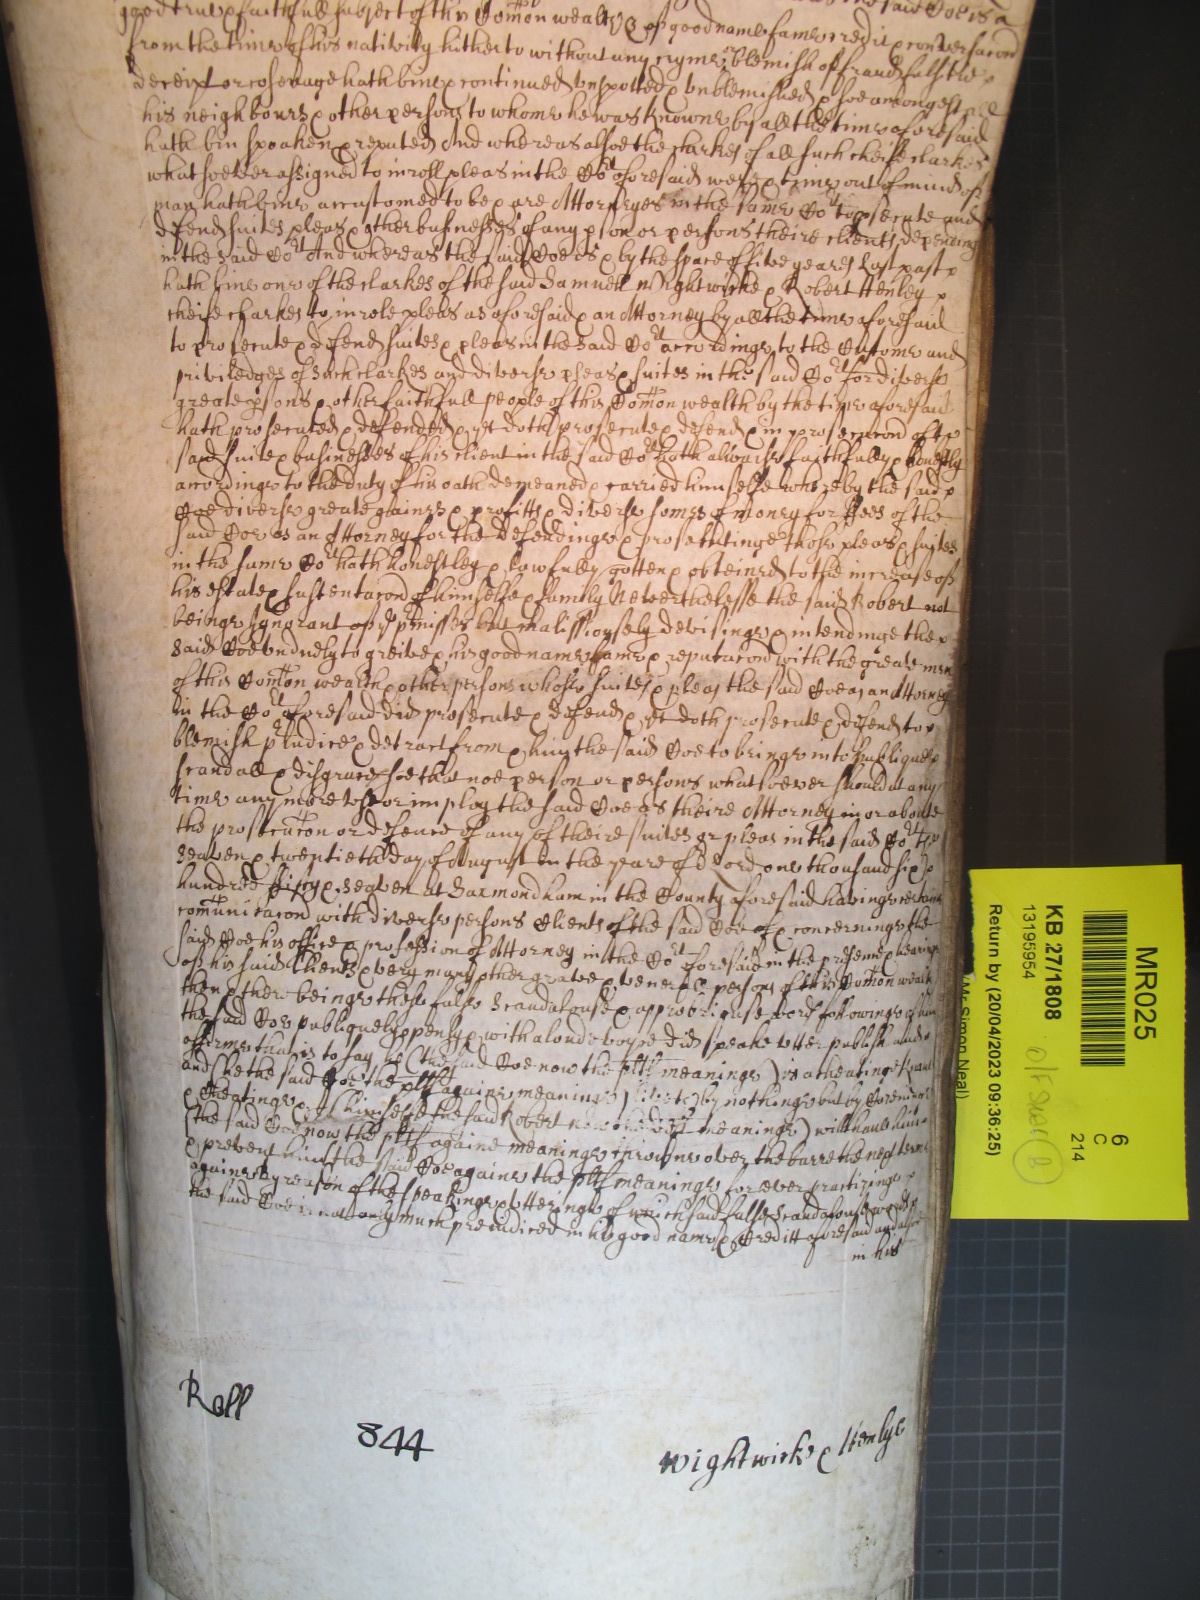 good true & faithfull subject of this Com̄on wealth & of good name fame credit & conversacon
from the time of his nativity hitherto without any cryme or blemish of fraud falsitie &
deceipt or cosenage hath bine & continued unspotted & unblemished & soe amongest all
his neighbours & other persons to whome he was knowne by all the time aforesaid
hath bin spoaken & reputed And whereas alsoe the clarkes of all such cheife clarkes
whatsoever assigned to inroll pleas in the Co:rt aforesaid were & time out of mind of
man hath bine accustomed to be & are Attorneyes in the same Co:rt to psecute and
defend suites pleas & other businesses of any pson or persons theire clients depending
in the said Co:rt And whereas the said Coe is & by the space of five yeares last past &
hath bine one of the clarkes of the said Samuell Wightwicke & Robert Henley &
cheife clarkes to inrole pleas as aforesaid & an Attorney by all the time aforesaid
to prosecute & defend suites & pleas in the said Co:rt accordinge to the Custome and
priviledges of such clarkes and diverse pleas & suites in the said Co:rt for diverse
greate psons & other faithfull people of this Com̄on wealth by the time aforesaid
hath prosecuted & defended & yet doth prosecute & defend & in prosecucon of the
said suites & businesses of his client in the said Co:rt hath alwaies faithfully & honestly
accordinge to the duty of his oath demeaned & carried himselfe whereby the said &
Coe diverse greate gaines & profitts & diverse somes of money for ffees of the
said Coe as an Attorney for the defendinge & prosecutinge those pleas & suites
in the same Co:rt hath honestley & lawfully gotten & obteined to the increase of
his estate & sustentacon of himselfe & family Neverthelesse the said Robert not
beinge ignorant of ye pmisses but malissiously devisinge & intendinge the &
said Coe unduely to greive & his good name fame & reputacon with the greate men
of this Com̄on wealth & other persons whose suites & pleas the said Coe as an Attorney
in the Co:rt aforesaid did prosecute & defend & yet doth prosecute & defend to &
blemish pjudice & detract from & him the said Coe to bringe into publique &
scandall & disgrace soe that noe person or persons whatsoever should at any
time any more use or imploy the said Coe as theire Attorney in or aboute
the prosecution or defence of any of theire suites or pleas in the said Co:rt the
seaven & twentieth day of August in the yeare of or Lord one thousand six &
hundred fifty & seaven at Saxmondham in the County aforesaid havinge certaine
com̄unicacon with diverse persons Clients of the said Coe of & concerninge the
said Coe his office & profession of Attorney in the Co:rt aforesaid in the presence & hearing
of his said Clients & very many other grave & venerable persons of this Com̄on wealth
then & there beinge these false scandalouse & approbriouse words followinge of him
the said Coe publiquely openly & with a loude voyce did speake utter publish and
afferme that is to say he (the said Coe now the pltf meaninge) is a cheatinge Knave
and (he the said Coe the pltf againe meaninge) liveth by nothinge but by Coreninge
& Cheatinge & I (himselfe the said Robert now the deft meaninge) will have him
(the said Coe now the pltf againe meaninge) throwne over the barre the next terme
& prevent him the said Coe againe the pltf meaninge for ever practizinge &
againe by reason of the speakinge & utteringe of which said false scandalouse words
the said Coe is not only much prejudiced in his good name & Creditt aforesaid and alsoe
in his
Roll
844
Wightwicke & Henlye
MR025
6
C
214
KB 27/1808
13195954
Return by (20/04/2023 09:36:25)
Mr Simon Neal)